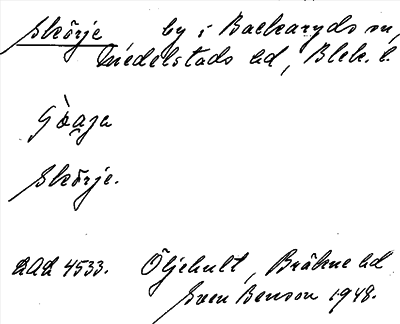 Skörje by i Backaryds sn,
Medelstads hd, Blek. l.
Göaja
Skörje.
LAL 4533. Öljehult, Bräkne hd
Sven Benson 1948.